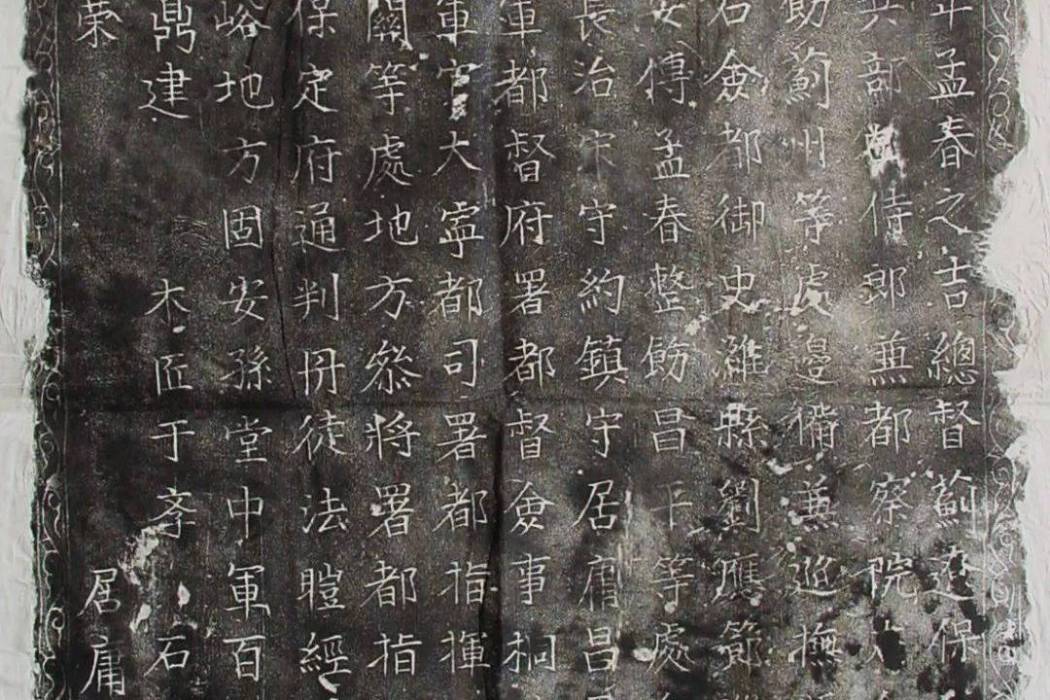 年孟春之吉總督薊遼保
兵部侍郎兼都察院右
飭薊州等處邊備兼巡撫
右僉都御史濰縣劉應節
安傅孟春整飭昌平等處
長治守約鎮守居庸昌
軍都督府署都督僉事桐
軍守大寧都司署都指揮
關等處地方參將署都指
保定府通判冊徒法瞪經
峪地方固安孫堂中軍百
鼎建 木匠于孝 石
榮 居庸